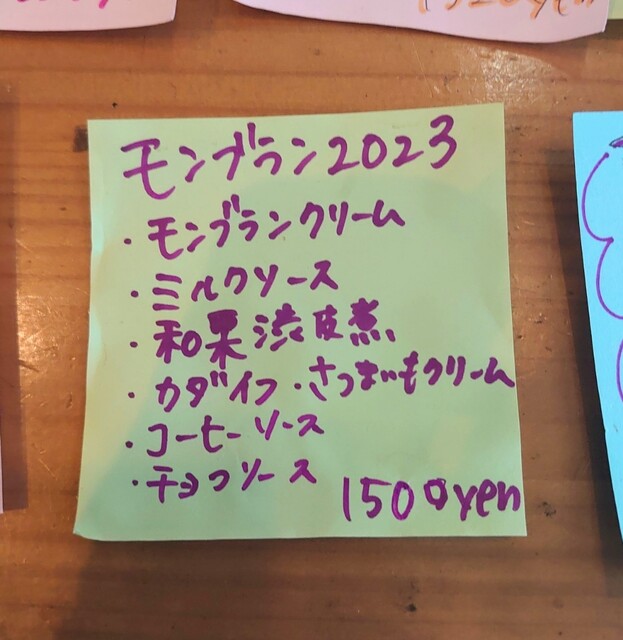 1320yen
モンブラン2023
・モンブランクリーム
・ミルクソース
・和栗渋皮煮
・カダイフ・さつまいもクリーム
・コーヒーソース
・チョコソース
1500yen